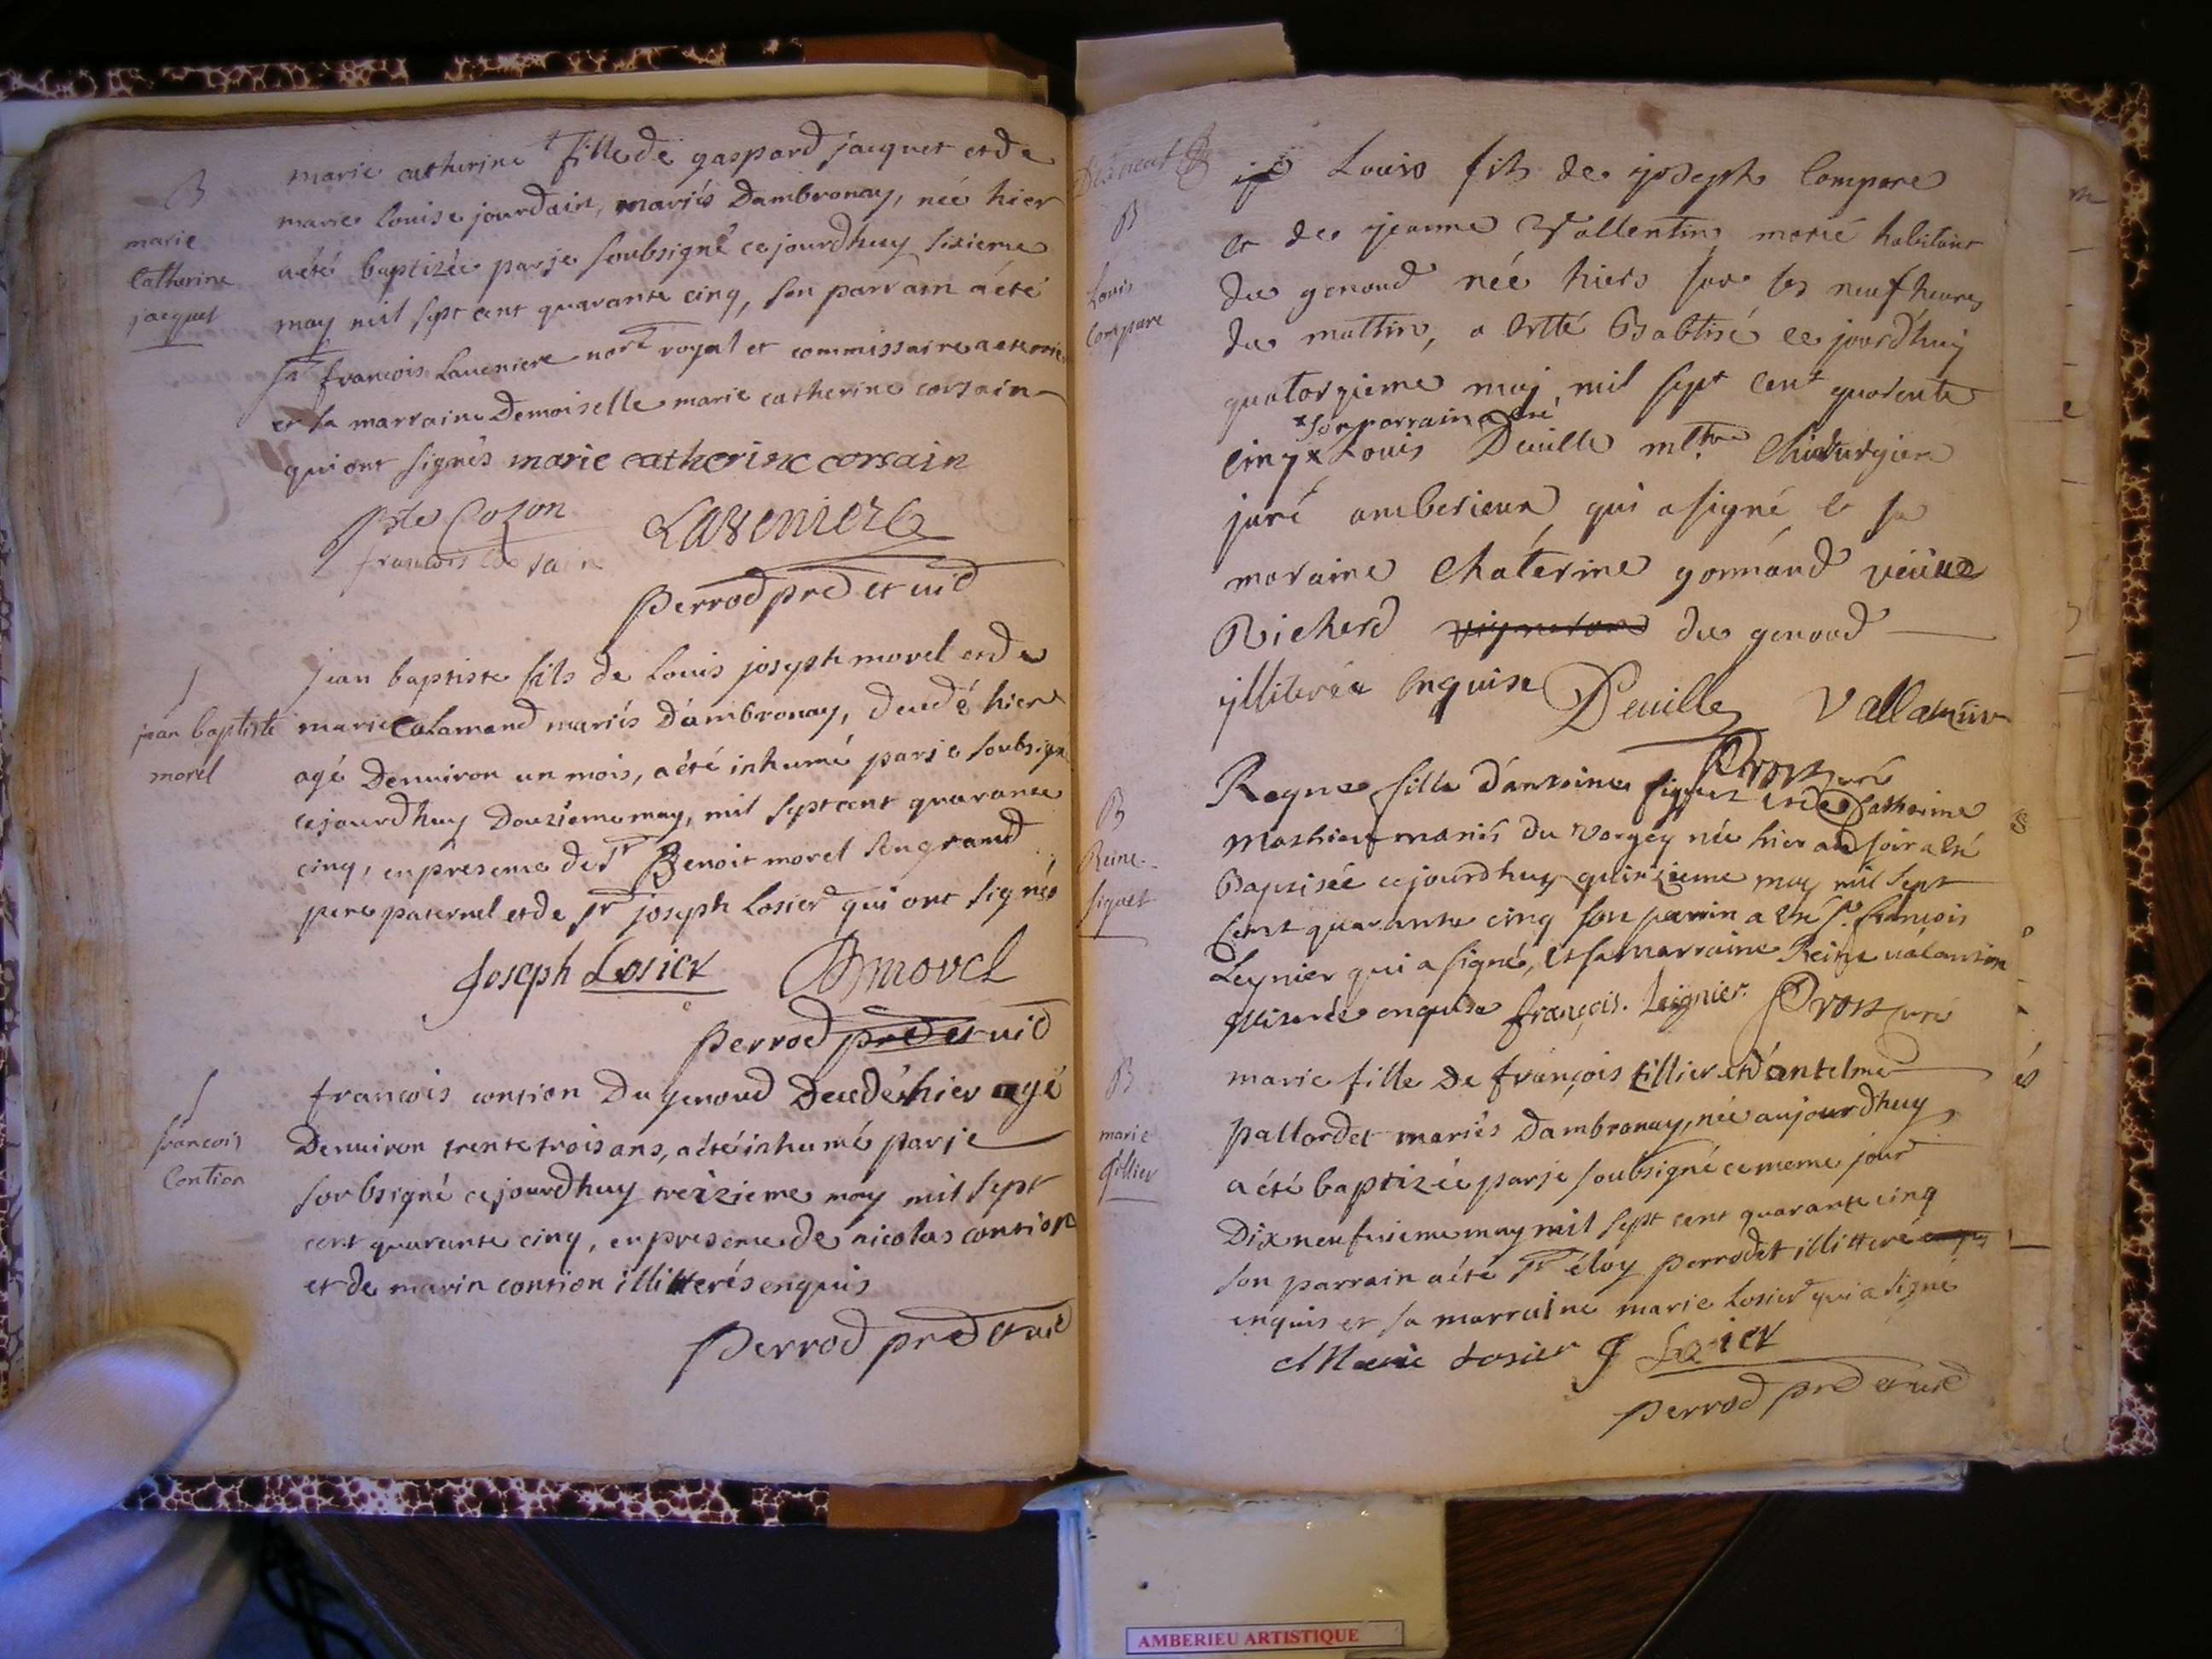 B
marie
Catherine
jacquet
marie catherine + fille de gaspard jacquet et de
marie louise jourdain, mariés d'ambronay, née hier
a été baptizée par je soubsigné ce jourdhuy sixieme
may mil sept cent quarante cinq, son parrain a été
sr francois Laveniere nore royal et commissaire a terrier
et sa marraine Demoiselle marie catherine corsain
qui ont signés marie catherine corsain
Cozon Laveniere
francois Corsain
perrod prd et vic
jean baptiste
morel
jean baptiste fils de Louis joseph morel et de
marie Calamand mariés d'ambronay, decedé hier
agé denviron un mois, a été inhumé par je soubsigné
cejourdhuy douzieme may, mil sept cent quarante
cinq, en presence de sr Benoit morel son grand
pere paternel et de sr joseph Losier qui ont signés
joseph Losier B morel
perrod prd et vic
francois
Contion
francois contion du genoud decedé hier agé
denviron trente trois ans, a été inhumé par je
soubsigné cejourdhuy treizieme may mil sept
cent quarante cinq, en presence de nicolas contion
et de marin contion illitterés enquis
perrod prd et vic
B
Louis
Compare
Louis fils de joseph Compare
et de jeanne Vallentin marié habitant
du genoud née hiers sur les neuf heures
du mattin, a estté Babtisé ce jourd'huij
quatorzieme maj mil sept cent quarente
x son parrain a été
cinq x Louis Deville mtre Chirurgien
juré amberieux qui a signé et sa
maraine Chaterine gonnand veuve
Richerd vigneron du genoud
illiterée enquise Deville Vallantin
Prost curé
B
Reine
figuet
Regne fille d'antoine figuet et de Catherine
Mathieu mariés du vorgey née hier au soir a été
Baptisée cejourdhuy quinzieme may mil sept
cent quarante cinq son parrin a été sr francois
Leynier qui a signé, et sa marraine Reine valantin
illiterée enquise françois. Leignier. Prost curé
B
marie
tillier
marie fille de françois tillier et d'antelme
pallordet mariés dambronay, née aujourdhuy
a été baptizée par je soubsigné ce meme jour
dix neufvieme may mil sept cent quarante cinq
son parrain a été sr éloy perrodet illitteré
enquis et sa marraine marie Losier qui a signé
Marie Losier J Losier
perrod prd et vic
AMBERIEU ARTISTIQUE